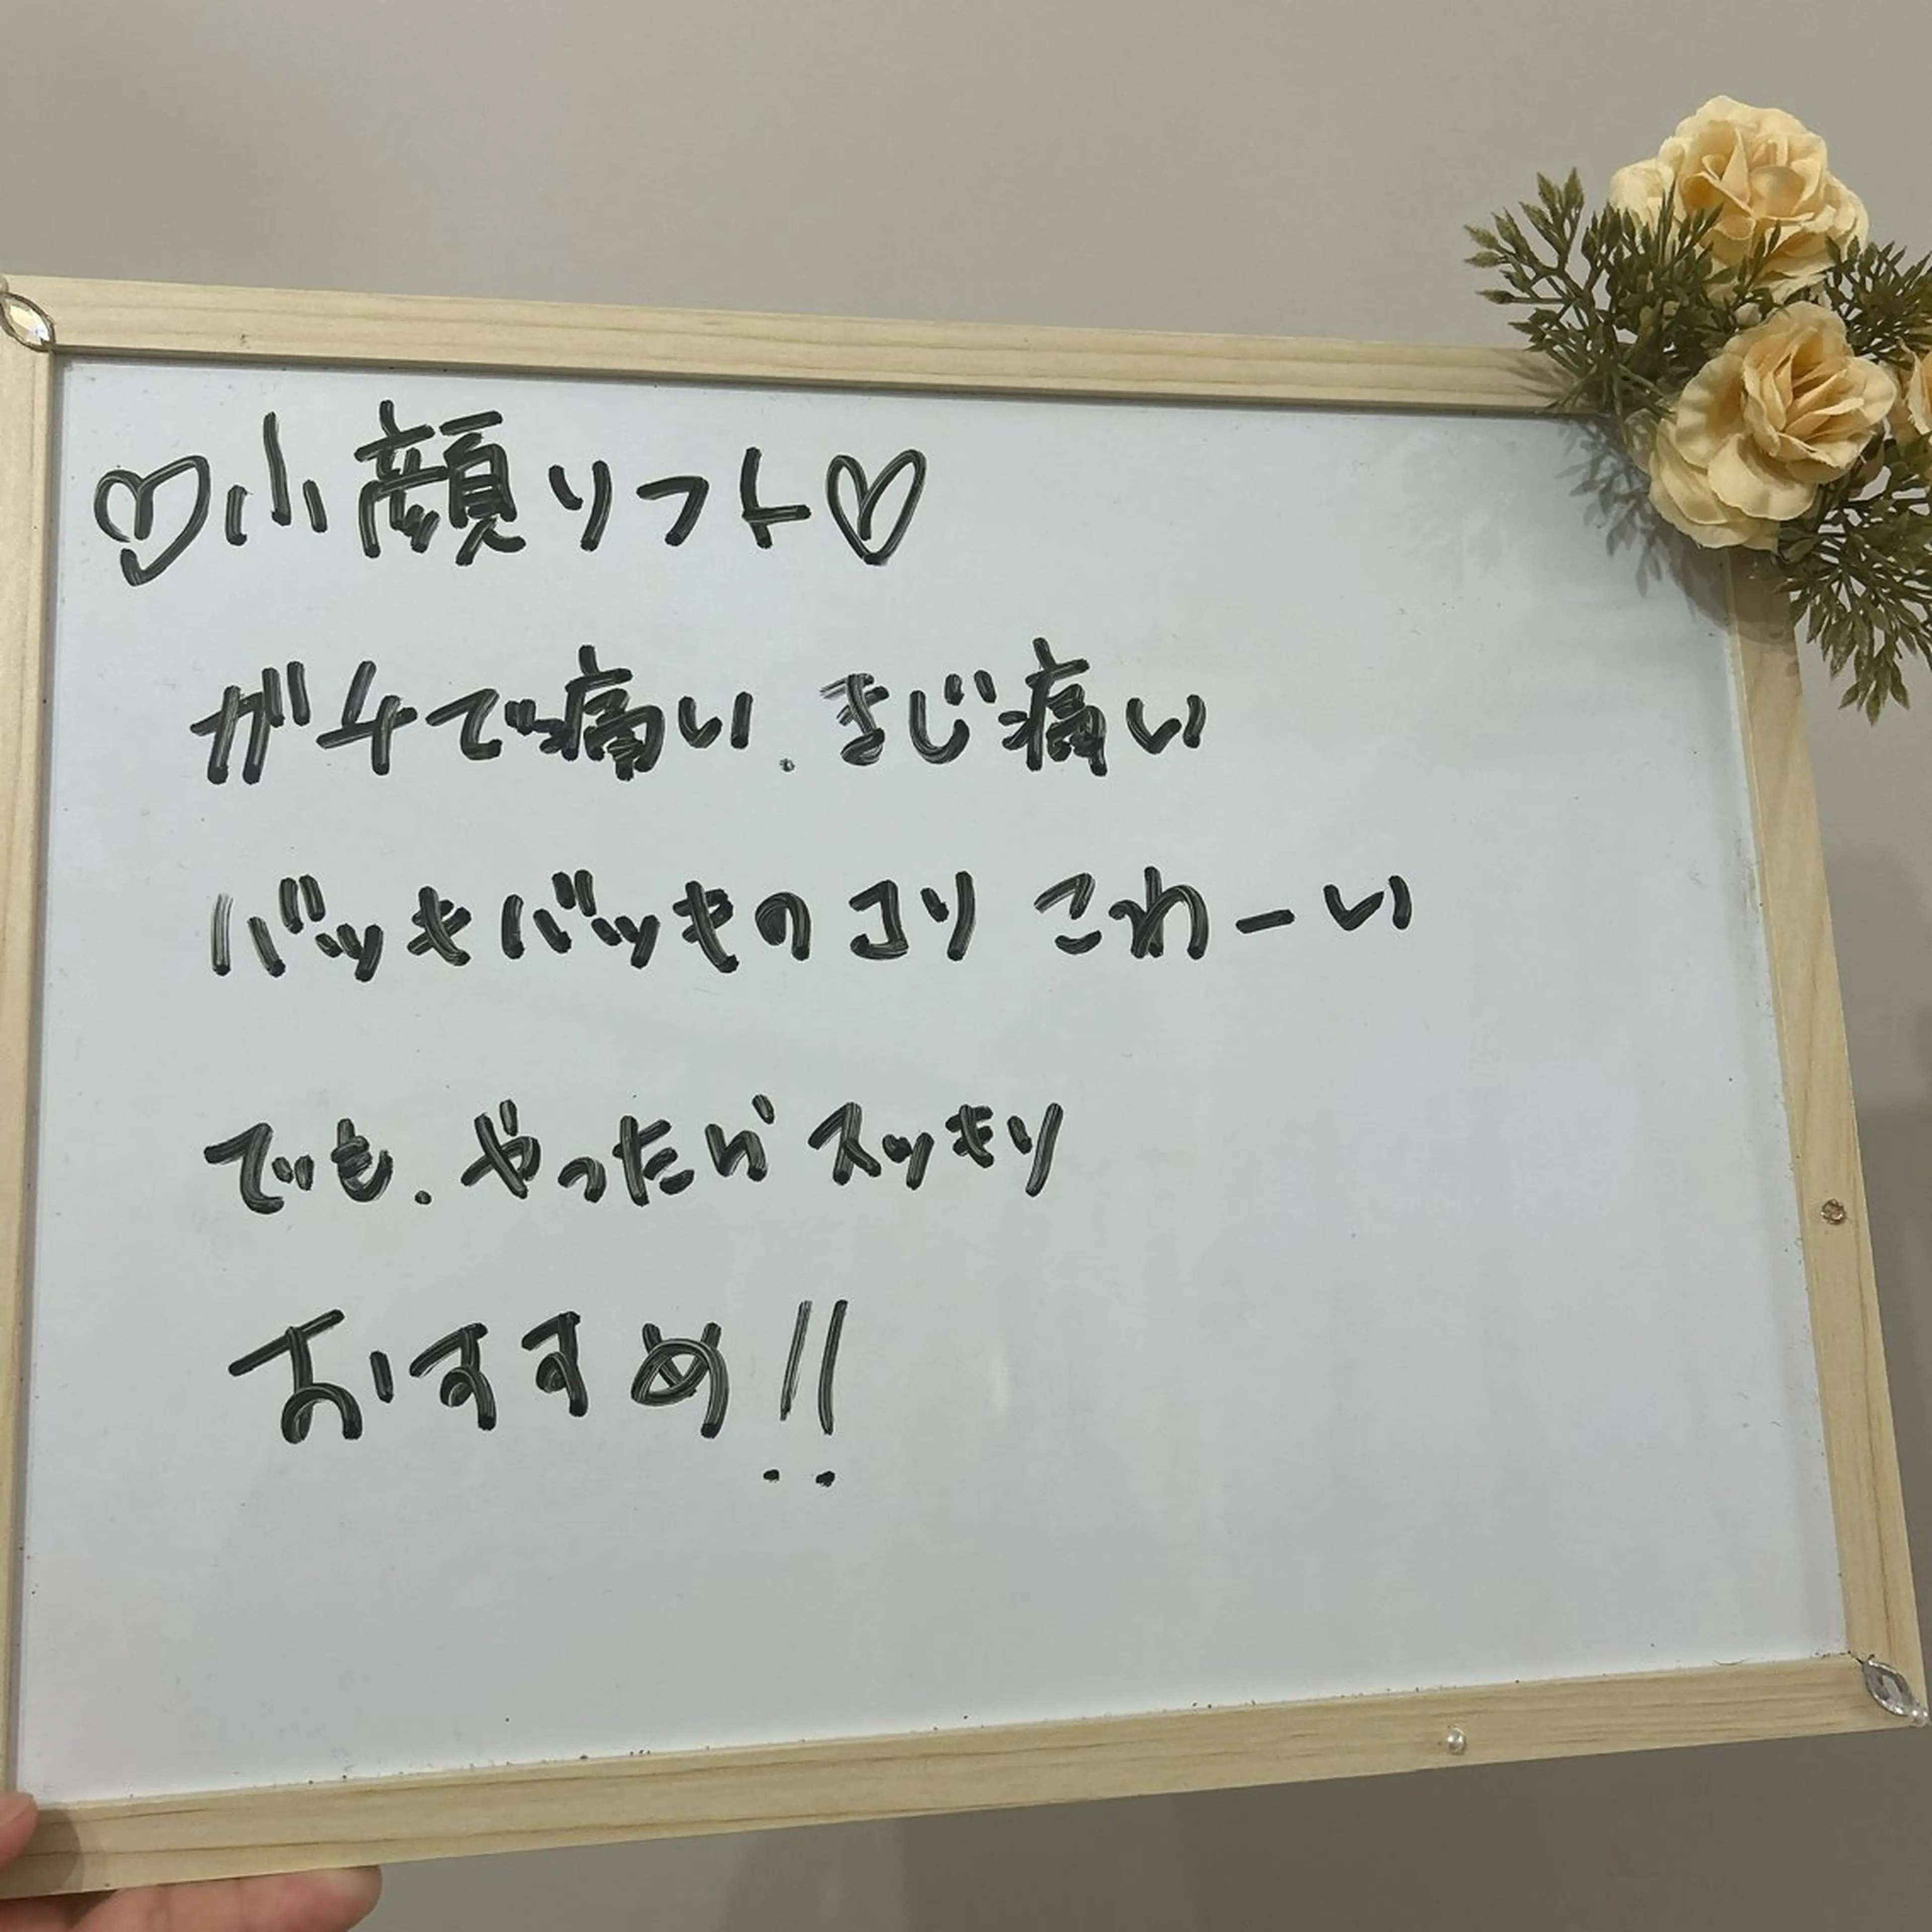 ♡小顔リフト♡
ガチで痛い.まじ痛い
バッキバッキのコリ こわーい
でも.やったらスッキリ
おすすめ!!